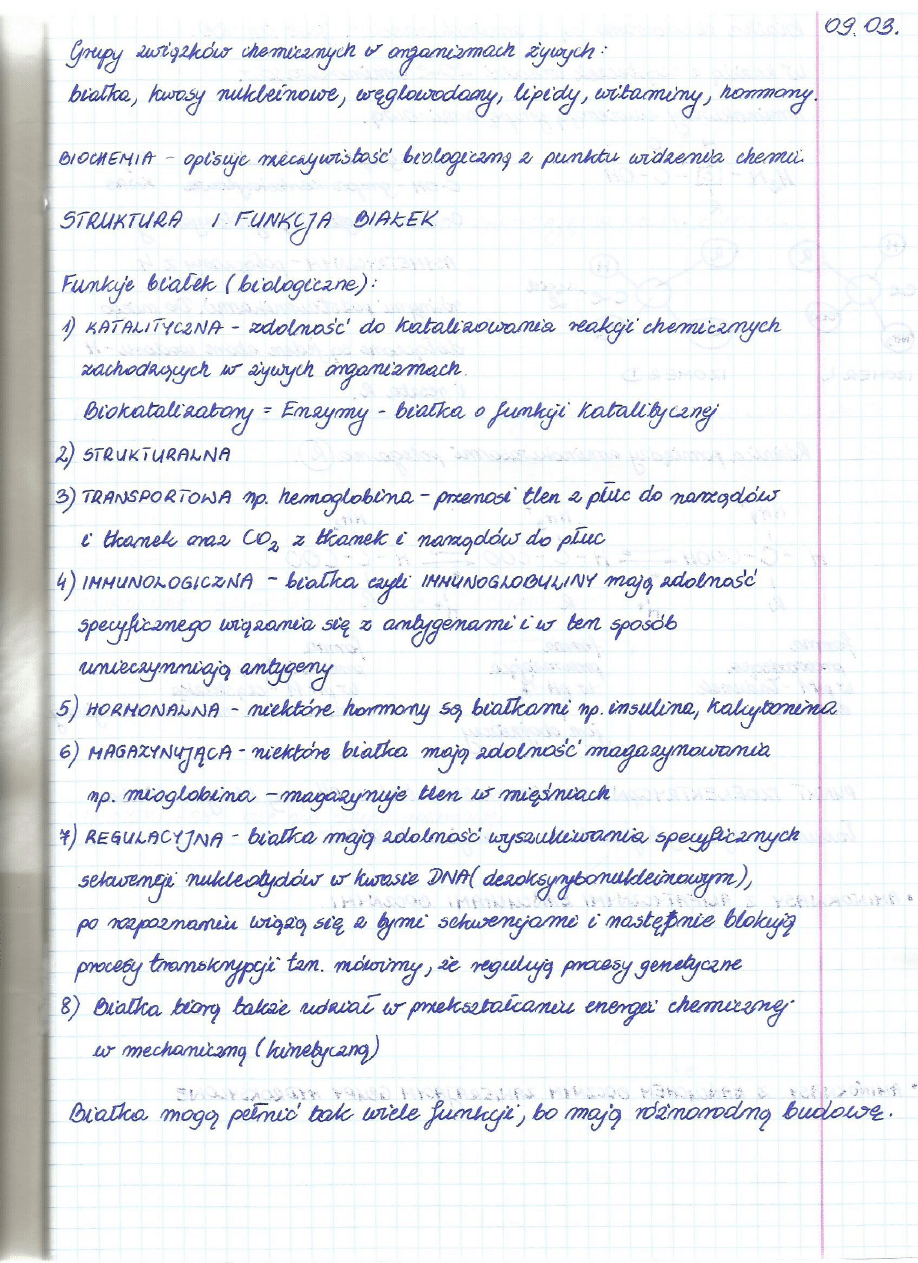 09.03.
Grupy związków chemicznych w organizmach żywych:
białka, kwasy nukleinowe, węglowodany, lipidy, witaminy, hormony.
BIOCHEMIA - opisuje rzeczywistość biologiczną z punktu widzenia chemii.
STRUKTURA I FUNKCJA BIAŁEK
Funkcje białek (biologiczne):
1) KATALITYCZNA - zdolność do katalizowania reakcji chemicznych
zachodzących w żywych organizmach.
Biokatalizatory = Enzymy - białka o funkcji katalitycznej
2) STRUKTURALNA
3) TRANSPORTOWA np. hemoglobina - przenosi tlen z płuc do narządów
i tkanek oraz CO₂ z tkanek i narządów do płuc
4) IMMUNOLOGICZNA - białka czyli IMMUNOGLOBULINY mają zdolność
specyficznego wiązania się z antygenami i w ten sposób
unieczynniają antygeny
5) HORMONALNA - niektóre hormony są białkami np. insulina, kalcytonina
6) MAGAZYNUJĄCA - niektóre białka mają zdolność magazynowania
np. mioglobina - magazynuje tlen w mięśniach
7) REGULACYJNA - białka mają zdolność wyszukiwania specyficznych
sekwencji nukleotydów w kwasie DNA (dezoksyrybonukleinowym),
po rozpoznaniu wiążą się z tymi sekwencjami i następnie blokują
procesy transkrypcji tzn. mówimy, że regulują procesy genetyczne
8) Białka biorą także udział w przekształcaniu energii chemicznej
w mechaniczną (kinetyczną)
Białka mogą pełnić tak wiele funkcji, bo mają różnorodną budowę.